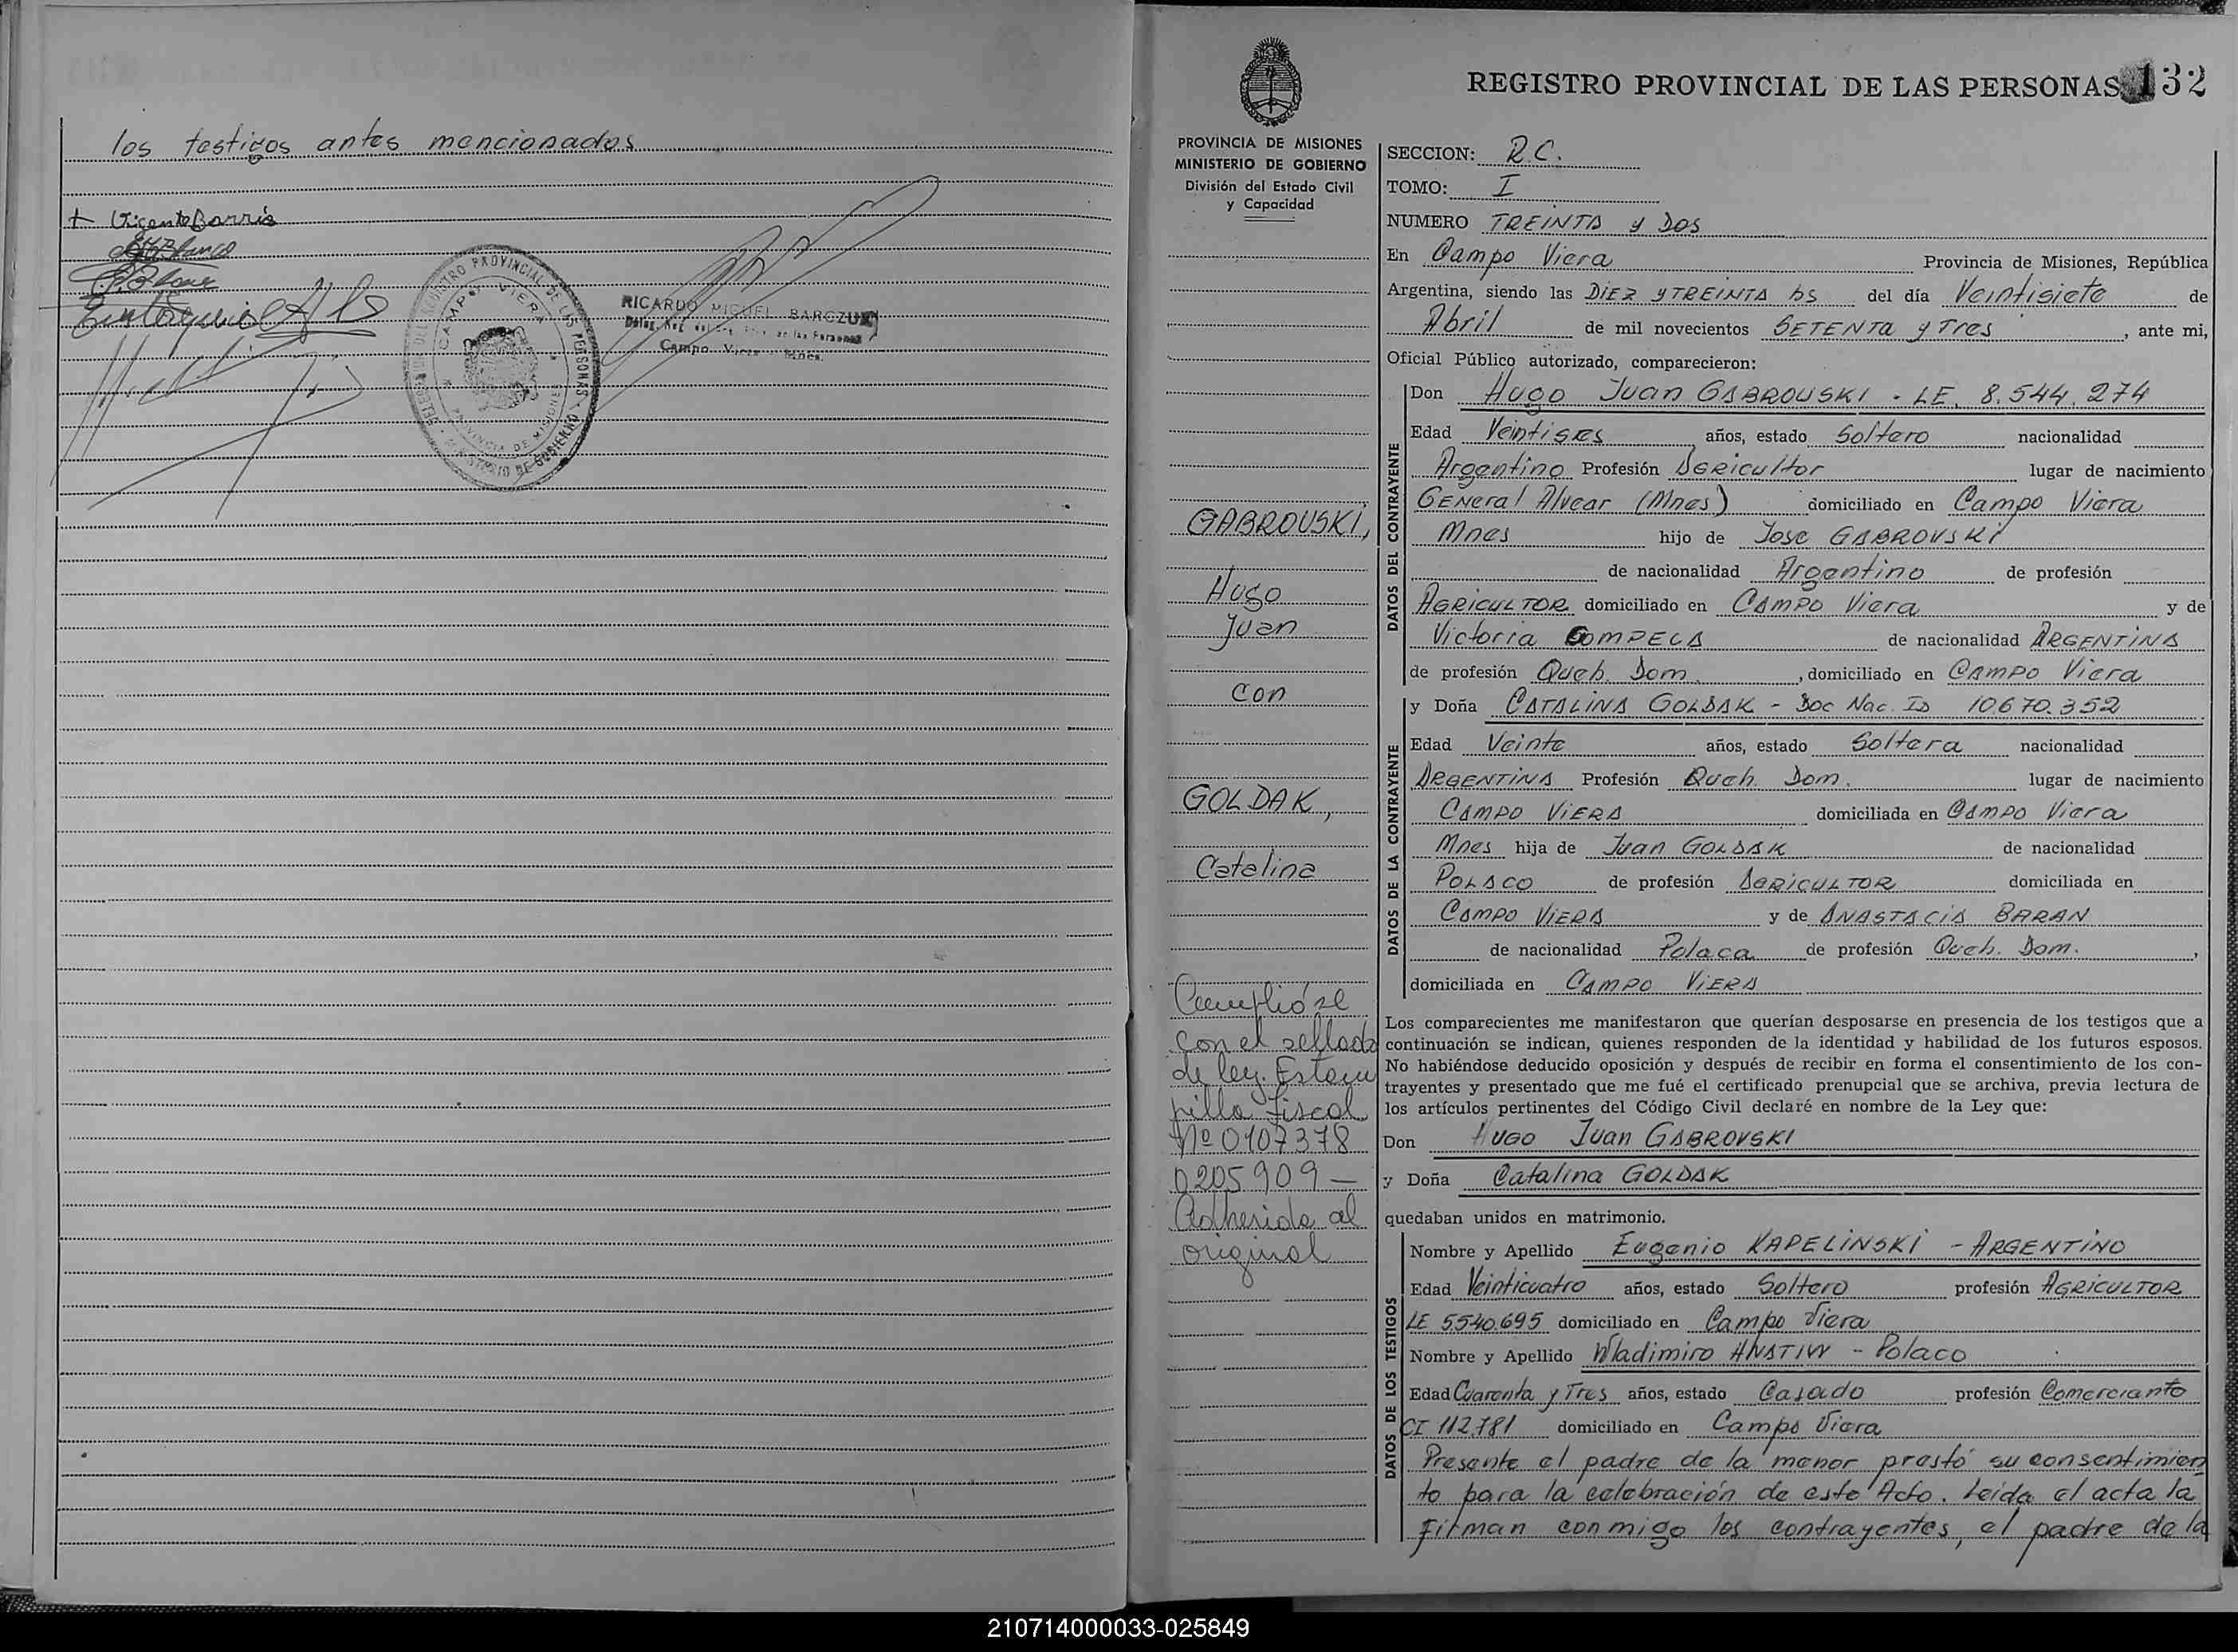 los testigos antes mencionados
+ Vicente Barrios
RICARDO MIGUEL BARCZUK
Campo Viera Mnes.
REGISTRO PROVINCIAL DE LAS PERSONAS
CAMPO VIERA
PROVINCIA DE MISIONES
MINISTERIO DE GOBIERNO
REGISTRO PROVINCIAL DE LAS PERSONAS 132
PROVINCIA DE MISIONES
MINISTERIO DE GOBIERNO
División del Estado Civil
y Capacidad
GABROUSKI,
Hugo
Juan
con
GOLDAK,
Catalina
Cumplióse
con el sellado
de ley. Estam
pilla fiscal
Nº 0107378
0205909 —
Adherida al
original
SECCION: R.C.
TOMO: I
NUMERO TREINTA y DOS
En Campo Viera Provincia de Misiones, República
Argentina, siendo las DIEZ y TREINTA hs del día Veintisiete de
Abril de mil novecientos SETENTA y Tres, ante mi,
Oficial Público autorizado, comparecieron:
DATOS DEL CONTRAYENTE
Don Hugo Juan GABROUSKI - LE. 8.544.274
Edad años, estado Soltero nacionalidad
Argentino Profesión AGRicultor lugar de nacimiento
GENeral Alvear (Mnes) domiciliado en Campo Viera
Mnes hijo de Jose GABROVSKI
de nacionalidad Argentino de profesión
AGRICULTOR domiciliado en CAMPO Viera y de
Victoria COMPELA de nacionalidad ARGENTINA
de profesión Queh. Dom., domiciliado en CAMPO Viera
DATOS DE LA CONTRAYENTE
y Doña CATALINA GOLDAK - Doc Nac. ID 10670.352
Edad Veinte años, estado Soltera nacionalidad
ARGENTINA Profesión Queh. Dom. lugar de nacimiento
CAMPO VIERA domiciliada en CAMPO Viera
Mnes hija de Juan GOLDAK de nacionalidad
POLACO de profesión AGRICULTOR domiciliada en
CAMPO VIERA y de ANASTACIA BARAN
de nacionalidad Polaca de profesión Queh. Dom.,
domiciliada en CAMPO VIERA
Los comparecientes me manifestaron que querían desposarse en presencia de los testigos que a
continuación se indican, quienes responden de la identidad y habilidad de los futuros esposos.
No habiéndose deducido oposición y después de recibir en forma el consentimiento de los con-
trayentes y presentado que me fué el certificado prenupcial que se archiva, previa lectura de
los artículos pertinentes del Código Civil declaré en nombre de la Ley que:
Don HUGO Juan GABROVSKI
y Doña Catalina GOLDAK
quedaban unidos en matrimonio.
DATOS DE LOS TESTIGOS
Nombre y Apellido Eugenio KAPELINSKI - ARGENTINO
Edad Veinticuatro años, estado Soltero profesión AGRICULTOR
LE 5.540.695 domiciliado en Campo Viera
Nombre y Apellido Wladimiro HNATIW - Polaco
Edad Cuarenta y Tres años, estado Casado profesión Comerciante
CI 112.781 domiciliado en Campo Viera
Presente el padre de la menor prestó su consentimien
to para la celebración de este Acto. Leida el acta la
Firman conmigo los contrayentes, el padre de la
210714000033-025849